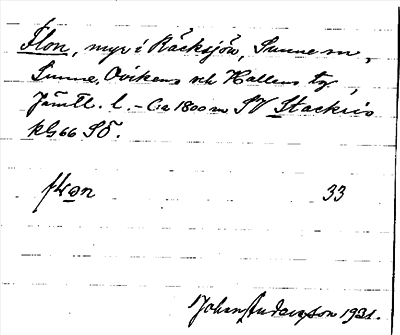 Flon, myr i Räcksjön, Sunne sn,
Sunne, Ovikens och Hallens tg,
Jämtl. l. – Ca 1800 m SV Stackris
kbl 66 SÖ.
33
Johan Anderson 1931.